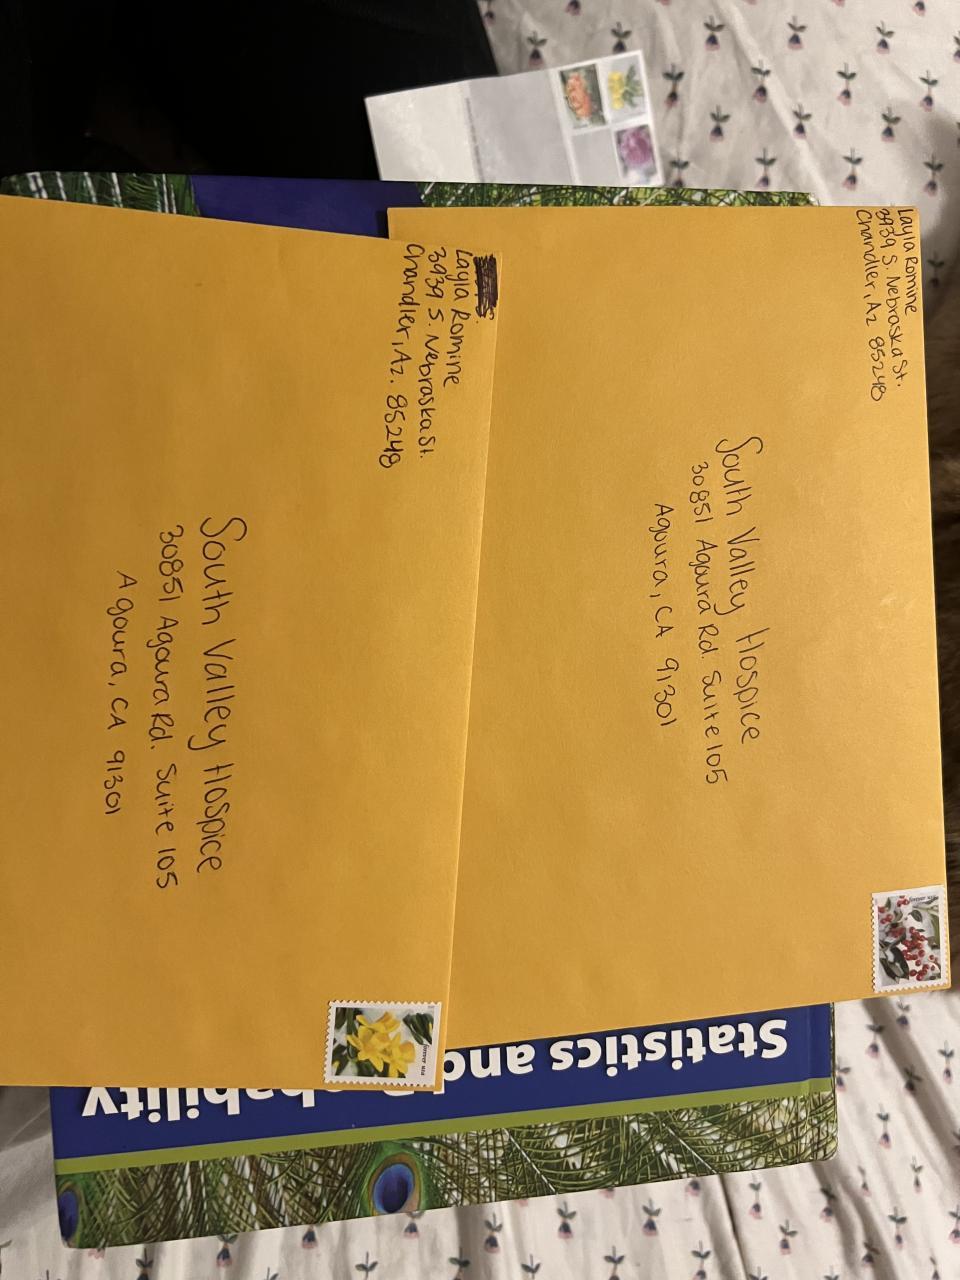 Layla Romine
3939 S. Nebraska St.
Chandler, Az 85248
South Valley Hospice
30851 Agoura Rd. Suite 105
Agoura, CA 91301
Layla Romine
3939 S. Nebraska St.
Chandler, Az. 85248
South Valley Hospice
30851 Agoura Rd. Suite 105
Agoura, CA 91301
Statistics and